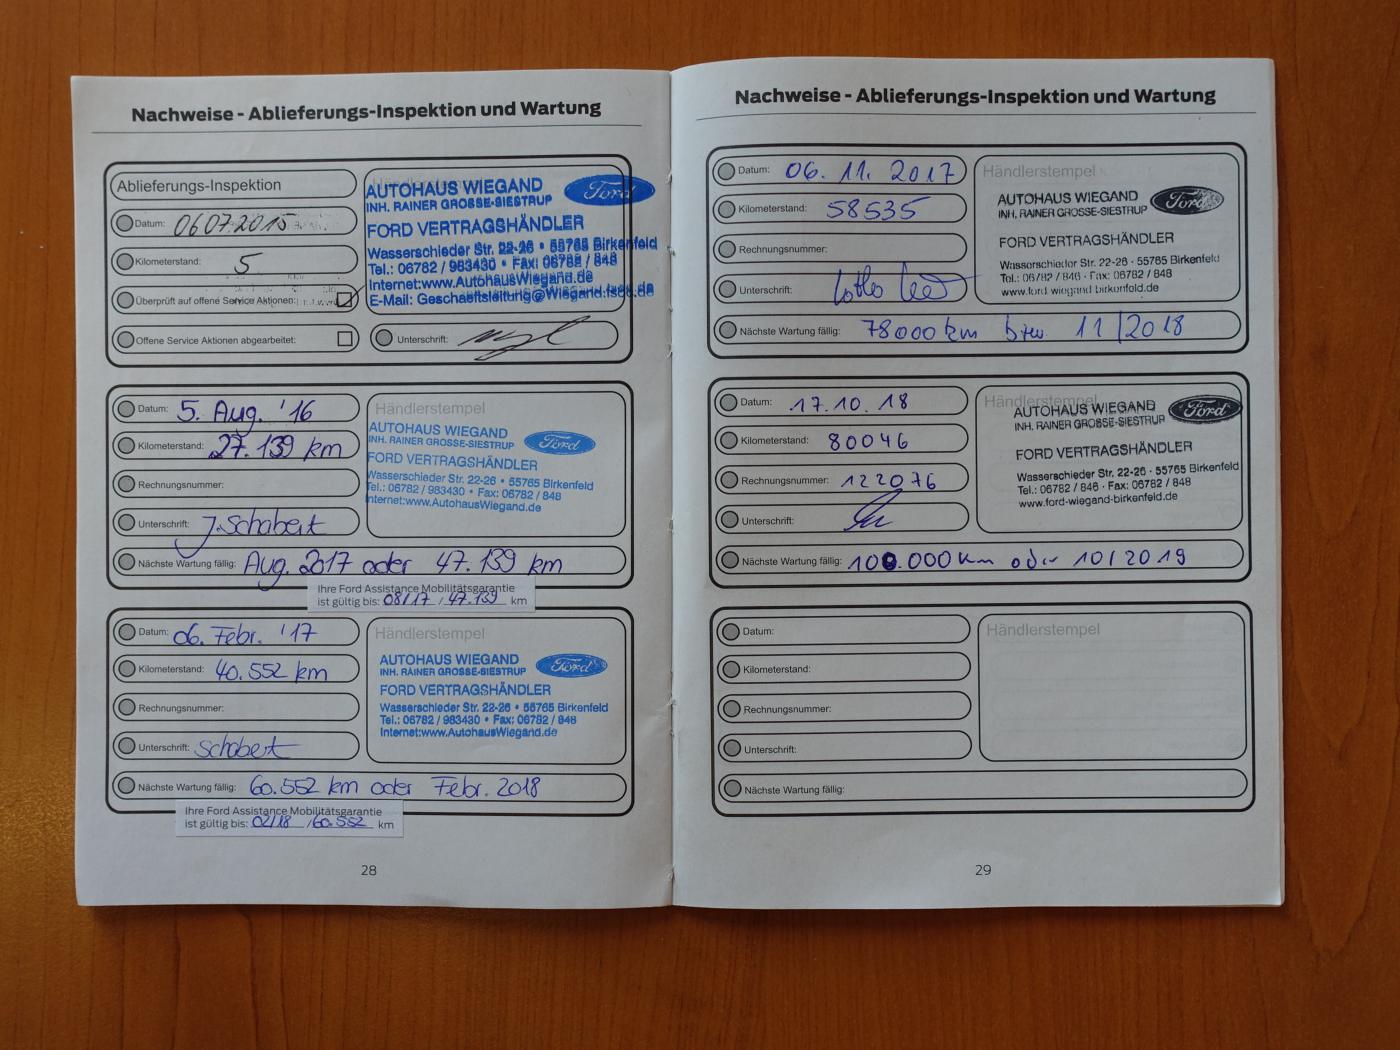 Nachweise - Ablieferungs-Inspektion und Wartung
Ablieferungs-Inspektion
Datum: 06.07.2015
Kilometerstand: 5
Überprüft auf offene Service Aktionen:
Offene Service Aktionen abgearbeitet:
Händlerstempel
AUTOHAUS WIEGAND
Ford
INH. RAINER GROSSE-SIESTRUP
FORD VERTRAGSHÄNDLER
Wasserschieder Str. 22-26 • 55765 Birkenfeld
Tel.: 06782 / 983430 • Fax: 06782 / 848
Internet:www.AutohausWiegand.de
E-Mail: Geschaeftsleitung@Wiegand.fsoc.de
Unterschrift:
Datum: 5. Aug. '16
Kilometerstand: 27.139 km
Rechnungsnummer:
Unterschrift: J. Schabert
Händlerstempel
AUTOHAUS WIEGAND
INH. RAINER GROSSE-SIESTRUP
Ford
FORD VERTRAGSHÄNDLER
Wasserschieder Str. 22-26 • 55765 Birkenfeld
Tel.: 06782 / 983430 • Fax: 06782 / 848
Internet:www.AutohausWiegand.de
Nächste Wartung fällig: Aug. 2017 oder 47.139 km
Ihre Ford Assistance Mobilitätsgarantie
ist gültig bis: 08/17 / 47.139 km
Datum: 06. Febr. '17
Kilometerstand: 40.552 km
Rechnungsnummer:
Unterschrift: Schabert
Händlerstempel
AUTOHAUS WIEGAND
INH. RAINER GROSSE-SIESTRUP
Ford
FORD VERTRAGSHÄNDLER
Wasserschieder Str. 22-26 • 55765 Birkenfeld
Tel.: 06782 / 983430 • Fax: 06782 / 848
Internet:www.AutohausWiegand.de
Nächste Wartung fällig: 60.552 km oder Febr. 2018
Ihre Ford Assistance Mobilitätsgarantie
ist gültig bis: 02/18 / 60.552 km
28
Nachweise - Ablieferungs-Inspektion und Wartung
Datum: 06. 11. 2017
Kilometerstand: 58535
Rechnungsnummer:
Unterschrift:
Händlerstempel
AUTOHAUS WIEGAND
INH. RAINER GROSSE-SIESTRUP
Ford
FORD VERTRAGSHÄNDLER
Wasserschieder Str. 22-26 · 55765 Birkenfeld
Tel.: 06782 / 846 · Fax: 06782 / 848
www.ford-wiegand-birkenfeld.de
Nächste Wartung fällig: 78000 km bzw. 11/2018
Datum: 17.10.18
Kilometerstand: 80046
Rechnungsnummer: 122076
Unterschrift:
Händlerstempel
AUTOHAUS WIEGAND
INH. RAINER GROSSE-SIESTRUP
Ford
FORD VERTRAGSHÄNDLER
Wasserschieder Str. 22-26 · 55765 Birkenfeld
Tel.: 06782 / 846 · Fax: 06782 / 848
www.ford-wiegand-birkenfeld.de
Nächste Wartung fällig: 100.000 km oder 10/2019
Datum:
Kilometerstand:
Rechnungsnummer:
Unterschrift:
Händlerstempel
Nächste Wartung fällig:
29